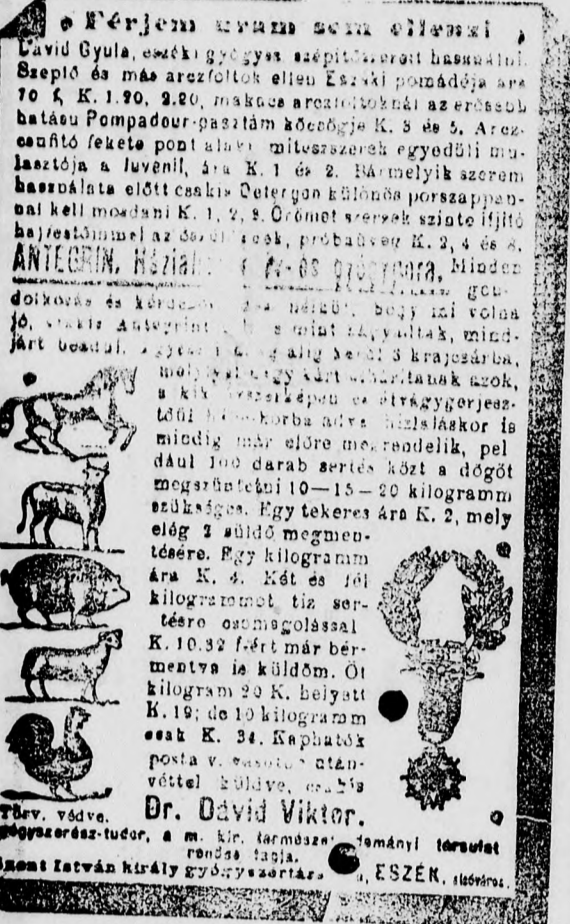 Férjem uram sem ellenzi
Dávid Gyula, eszéki gyógysz. szépítőszereit használni.
Szeplő és más arczfoltok ellen Eszéki pomádéja ára
70 f, K. 1.20, 2.20, makacs arczfoltoknál az erősebb
hatásu Pompadour-pasztám köcsögje K. 3 és 5. Arcz-
csufitó fekete pont alaku miteszszerek egyedüli mu-
lasztója a Juvenil, ára K. 1 és 2. Bármelyik szerem
használata előtt csakis Detergon különös porszappan-
nal kell mosdani K. 1, 2, 3. Örömet szerzek szinte ifjitó
hajfestőimmel az próbaüveg K. 2, 4 és 8.
ANTEGRIN, és gyógypora, Minden
gon-
dolkozás és nélkül, hogy mi volna
jó, mint mind-
járt beadni. alig kerül 3 krajcsárba,
kárt elháritanak azok,
a kik étvágygerjesz-
tőül adva hizlaláskor is
mindig már előre megrendelik, pel
dául 100 darab sertés közt a dögöt
megszüntetni 10—15—20 kilogramm
szükséges. Egy tekercs ára K. 2, mely
elég 2 süldő megmen-
tésére. Egy kilogramm
ára K. 4. Két és fél
kilogrammot, tiz ser-
tésre csomagolással
K. 10.32 f-ért már bér-
mentva is küldöm. Öt
kilogram 20 K. helyett
K. 19; de 10 kilogramm
csak K. 34. Kaphatók
posta v. után-
véttel küldve, csakis
Dr. Dávid Viktor.
Törv. védve.
gyógyszerész-tudor, a m. kir. társulat
rendes tagja.
Szent István király gyógyszertára ESZÉK, alsóváros.